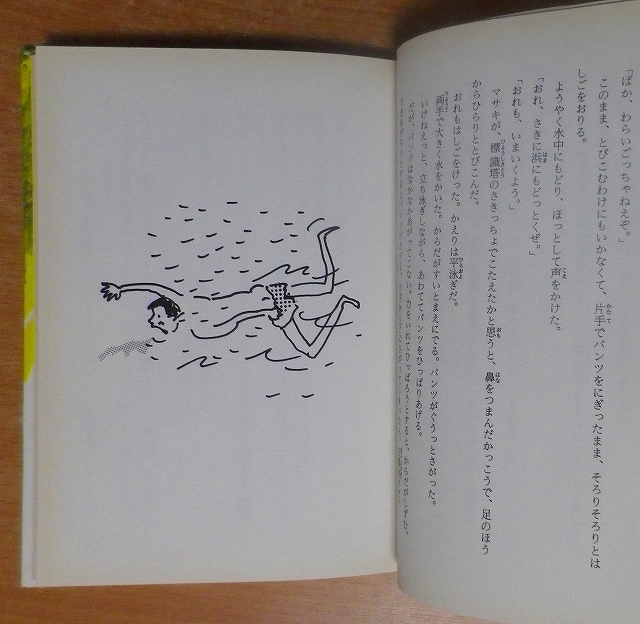 「ばか、わらいごっちゃねえぞ。」
このまま、とびこむわけにもいかなくて、片手でパンツをにぎったまま、そろりそろりとは
しごをおりる。
ようやく水中にもどり、ほっとして声をかけた。
「おれ、さきに浜にもどっとくぜ。」
「おれも、いまいくよう。」
マサキが、標識塔のさきっちょでこたえたかと思うと、鼻をつまんだかっこうで、足のほう
からひらりととびこんだ。
おれもはしごをけった。かえりは平泳ぎだ。
両手で大きく水をかいた。からだがすいとまえにでる。パンツがぐうっとさがった。
いけねえっと、立ち泳ぎしながら、あわててパンツをひっぱりあげる。
だが、パンツはなかなかあがってこない。力をいれてひっぱろうとすると、からだがしずむ。